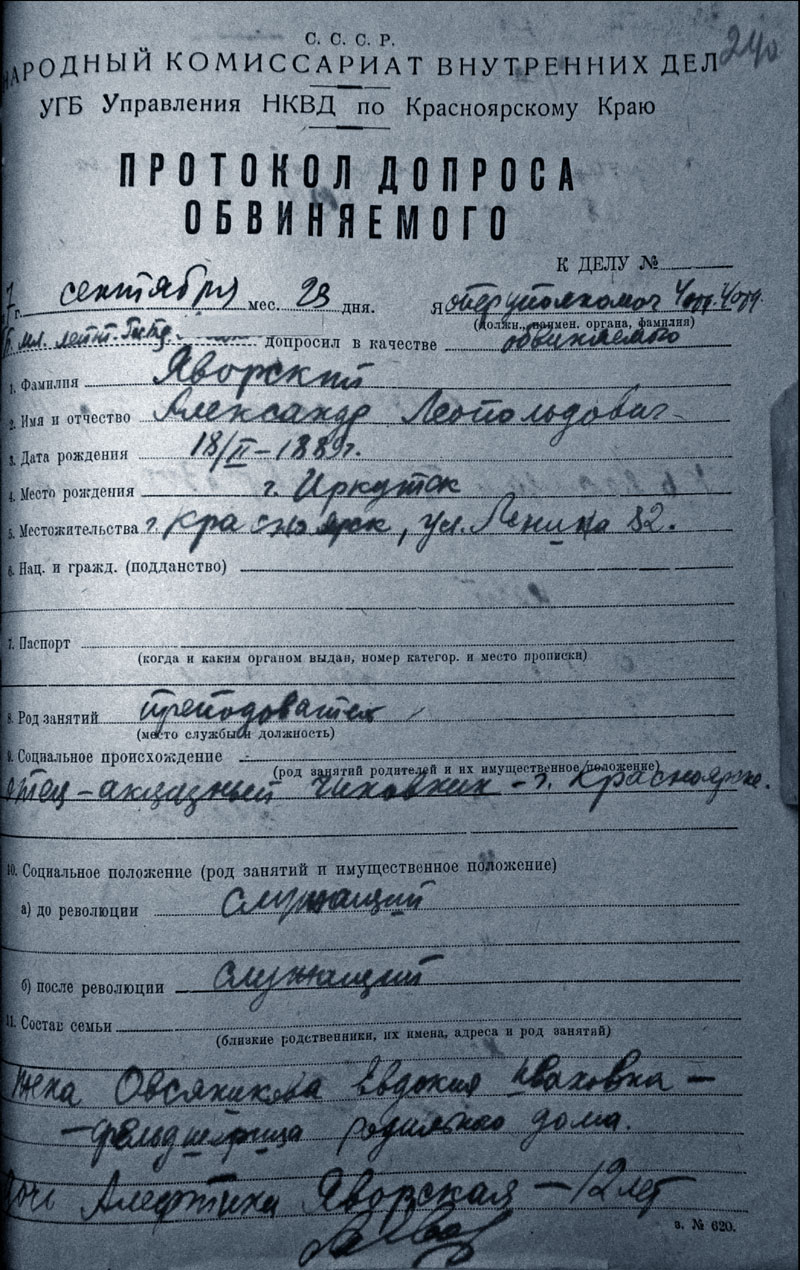 240
С. С. С. Р.
НАРОДНЫЙ КОМИССАРИАТ ВНУТРЕННИХ ДЕЛ
УГБ Управления НКВД по Красноярскому Краю
ПРОТОКОЛ ДОПРОСА
ОБВИНЯЕМОГО
К ДЕЛУ №
7 г. сентября мес. 23 дня. Я оперуполномоч 4 отд. 4 отд.
(должн., наимен. органа, фамилия)
мл. лейт. допросил в качестве обвиняемого
1. Фамилия Яворский
2. Имя и отчество Александр Леопольдович
3. Дата рождения 18/II-1889г.
4. Место рождения г. Иркутск
5. Местожительства г. Красноярск, ул. Ленина 82.
6. Нац. и гражд. (подданство)
7. Паспорт
(когда и каким органом выдан, номер категор. и место прописки)
8. Род занятий преподователь
(место службы и должность)
9. Социальное происхождение
(род занятий родителей и их имущественное положение)
отец - акцизный чиновник - г. Красноярск.
10. Социальное положение (род занятий и имущественное положение)
а) до революции служащий
б) после революции служащий
11. Состав семьи
(близкие родственники, их имена, адреса и род занятий)
жена Овсяникова Евдокия Ивановна -
- фельдшерица родильного дома.
дочь Алефтина Яворская - 12 лет
з. № 620.